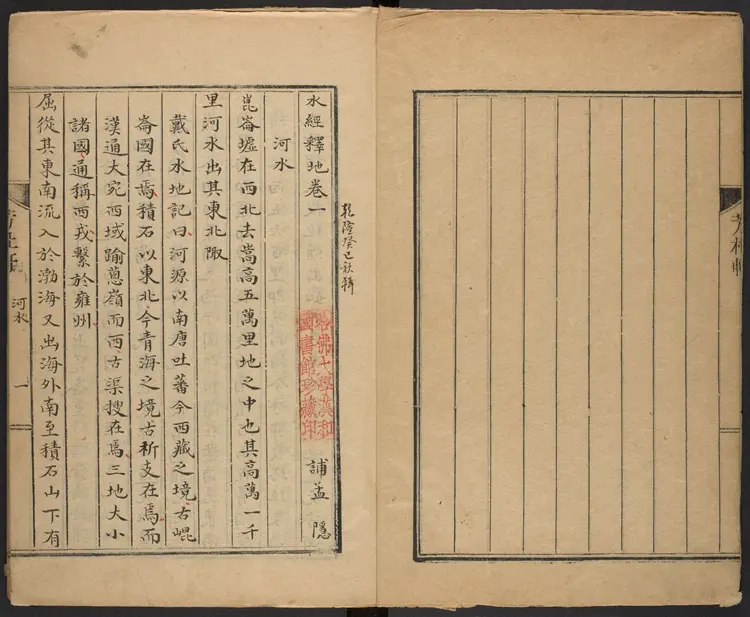 水經釋地卷一
誧孟隱
乾隆癸巳秋稿
哈佛大學漢和
圖書館珍藏印
河水
崑崙墟在西北去嵩高五萬里地之中也其高萬一千
里河水出其東北陬
戴氏水地記曰河源以南唐吐蕃今西藏之境古崐
崙國在焉積石以東北今青海之境古析支在焉而
漢通大宛西域踰蔥嶺而西古渠搜在焉三地大小
諸國通稱西戎繫於雍州
屈從其東南流入於渤海又出海外南至積石山下有
河水
一